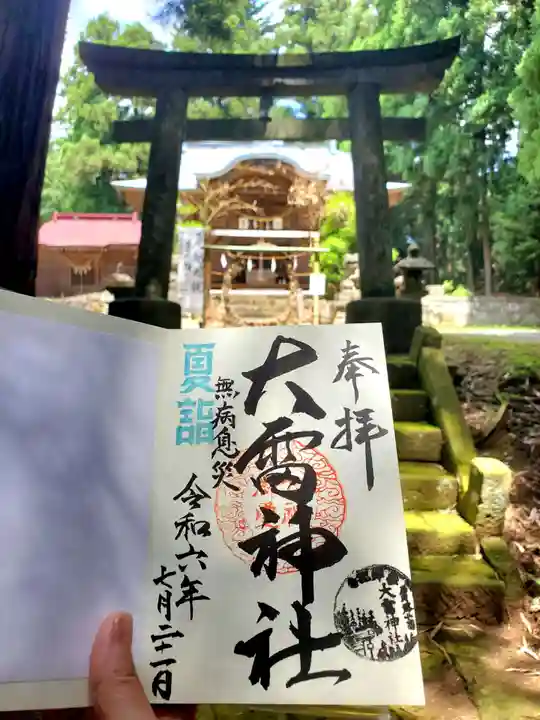 奉拝
大雷神社
夏詣
無病息災
令和六年
七月二十一日
大雷神社